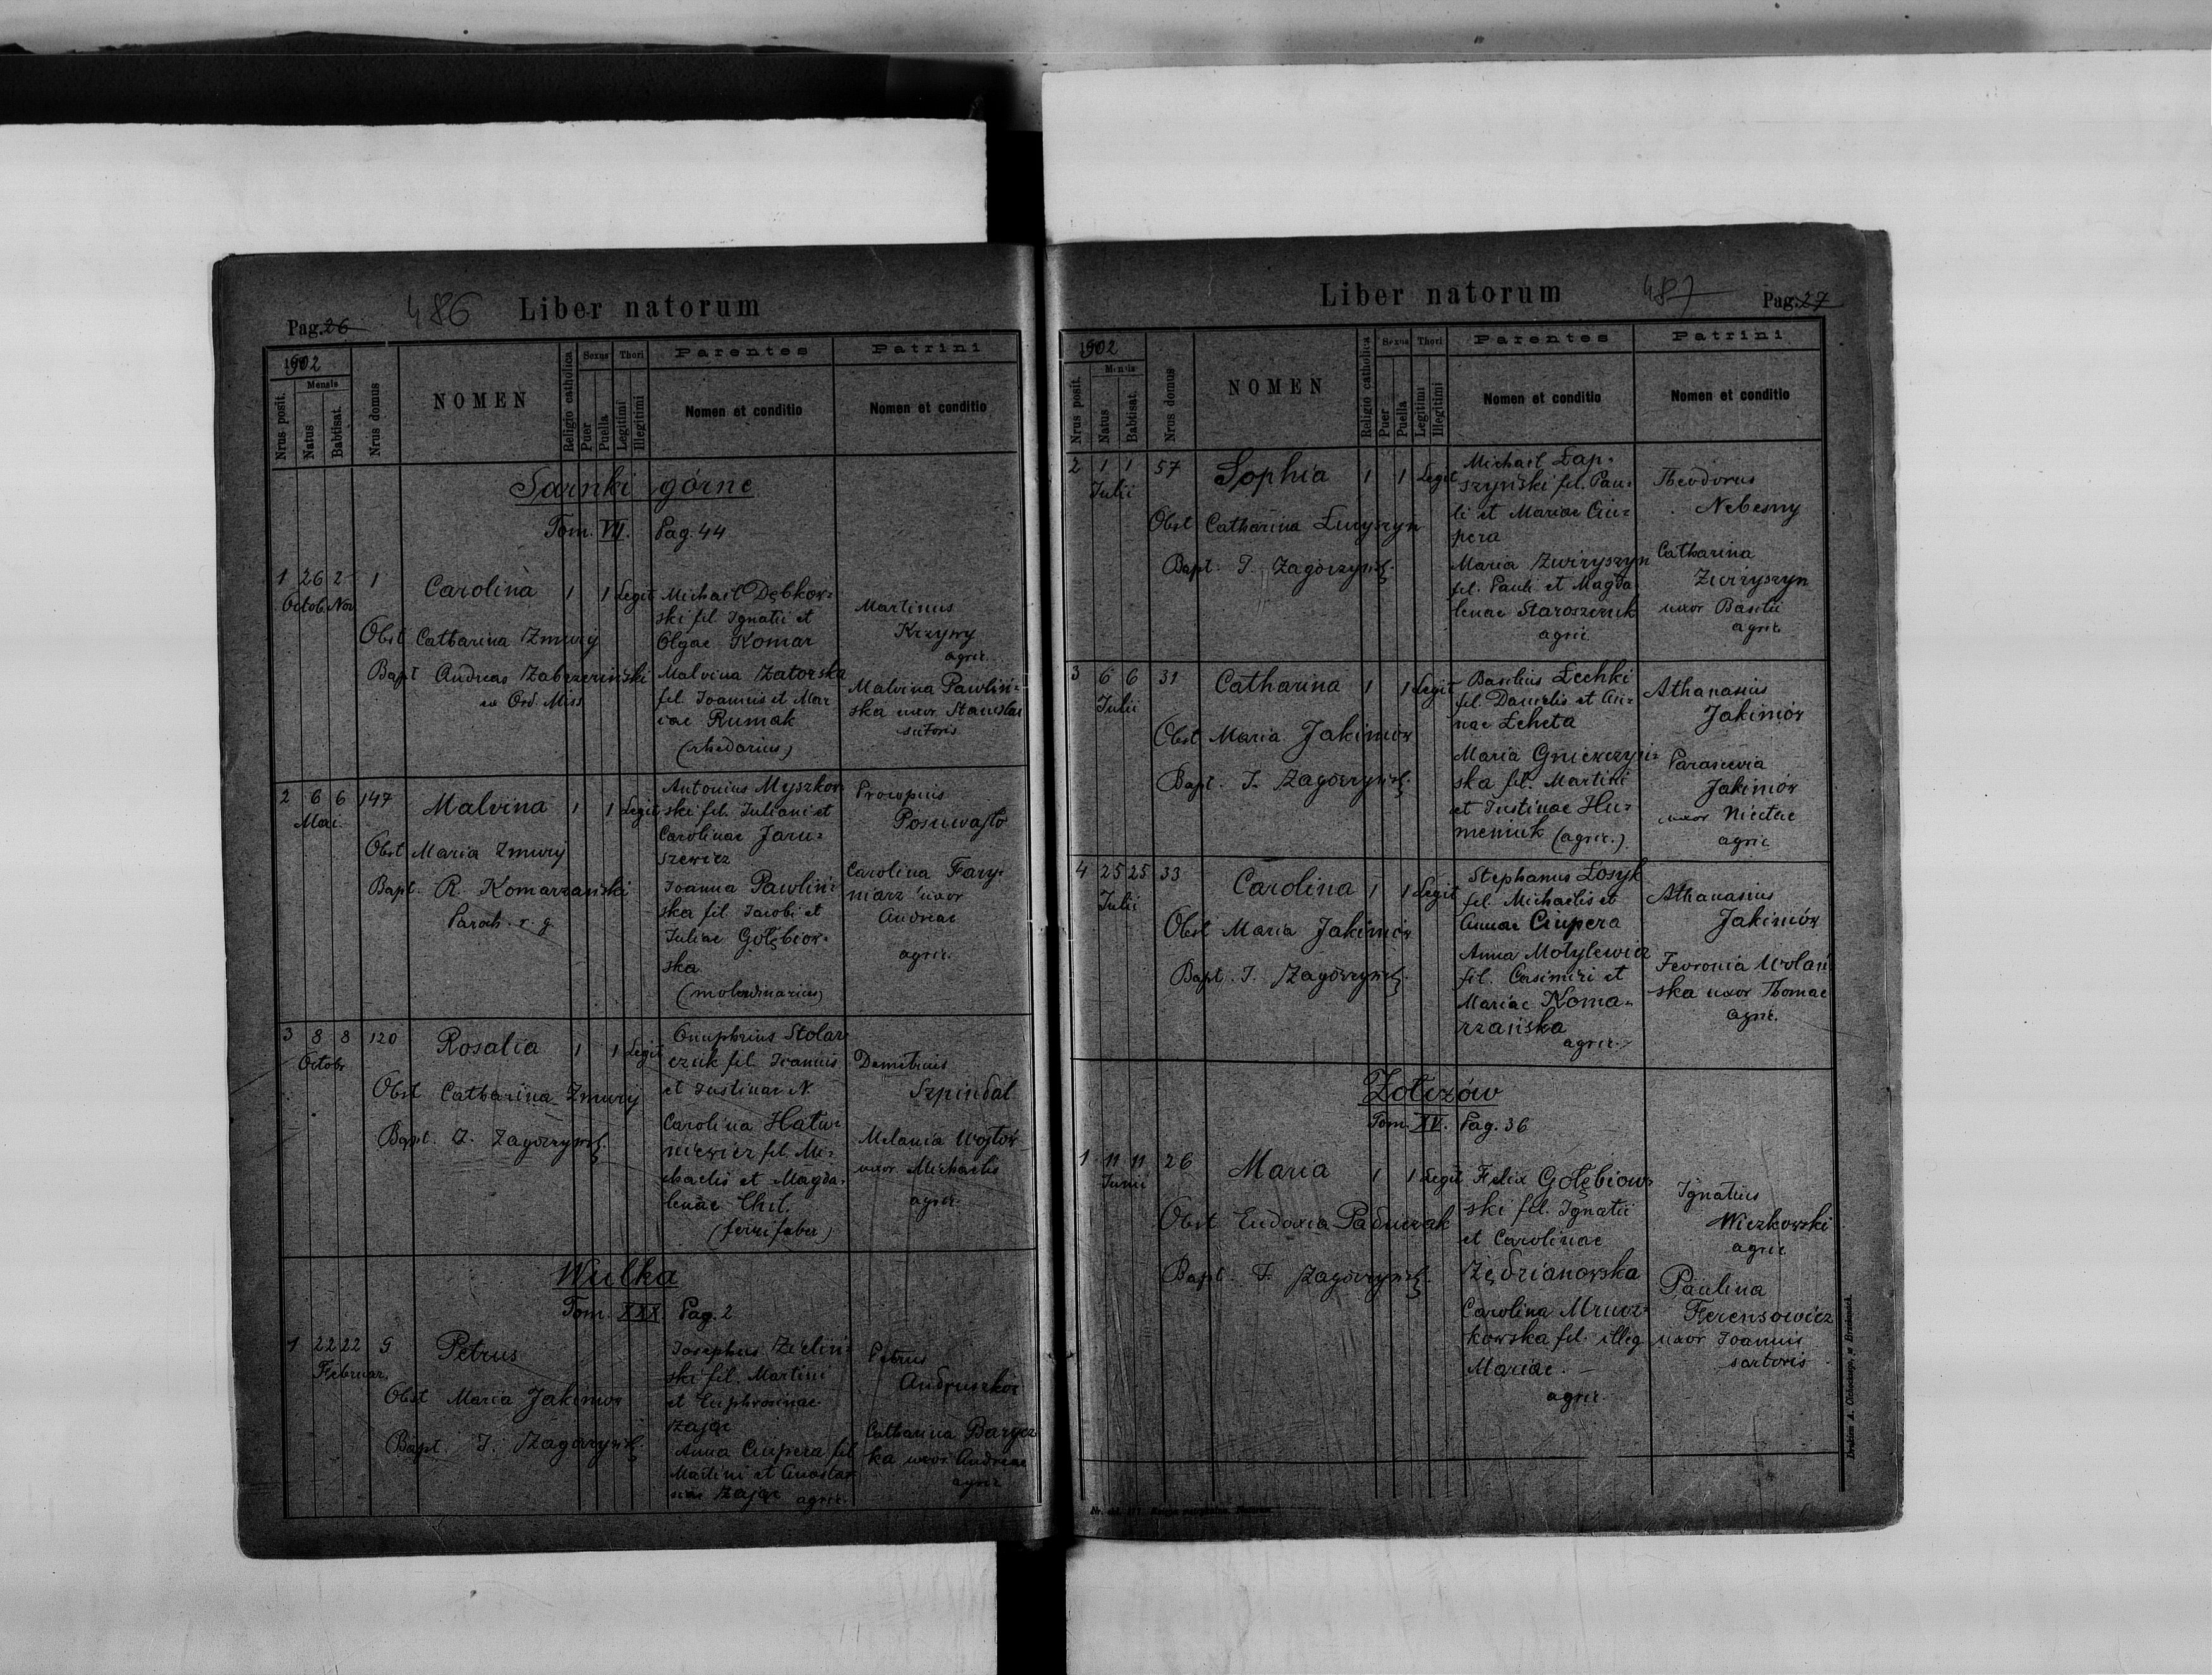 Liber natorum
486
Pag. 26
1902
Nrus posit.
Mensis
Natus
Babtisat.
Nrus domus
NOMEN
Religio catholica
Sexus
Puer
Puella
Thori
Legitimi
Illegitimi
Parentes
Nomen et conditio
Patrini
Nomen et conditio
Sarnki górne
Tom. VII. Pag. 44
1 26 2 1 Carolina 1 1 Legit
Octob. Nov
Obst Catharina Zmurij
Bapt Andreas
ex Ord. Miss
Michael Dębkow-
ski fil Ignatii et
Olgae Komar
Malvina Zatorska
fil. Joannis et Mar
iae Rumak
(rhedarius)
Martinus
Krzywy
agric.
Malvina Pawliń-
ska uxor Stanislai
sutoris
2 6 6 147 Malvina 1 1 Legit
Mai.
Obst Maria Zmurij
Bapt. R. Komarzański
Paroch. r. g.
Antonius Myszkow
ski fil. Juliani et
Carolinae Jaru-
szewicz
Joanna Pawliń-
ska fil Jacobi et
Juliae Gołębiow-
ska
Procopius
Posuwajło
Carolina Fary-
niarz uxor
Andreae
agric.
3 8 8 120 Rosalia 1 1 Legit
Octobr
Obst Catharina Zmurij
Bapt. J.
Onuphrius Stolar
czuk fil. Joannis
et Justinae N.
Carolina Hatw-
niewicz fil. Mi-
chaelis et Magda-
lenae Chil.
(ferri faber)
Demetrius
Szpindal
Melania Wojtów
uxor Michaelis
agric.
Wulka
Tom. XXX. Pag. 2
1 22 22 9 Petrus
Februar.
Obst Maria Jakimow
Bapt. J.
Josephus Zieliń-
ski fil. Martini
et Euphrosinae
Zając
Anna Ciupera fil
Martini et Anasta
siae Zając agric.
Petrus
Andruszków
Catharina
ka uxor Andreae
agric
Liber natorum
487
Pag. 27
1902
Nrus posit.
Mensis
Natus
Babtisat.
Nrus domus
NOMEN
Religio catholica
Sexus
Puer
Puella
Thori
Legitimi
Illegitimi
Parentes
Nomen et conditio
Patrini
Nomen et conditio
2 1 1 57 Sophia 1 1 Legit
Julii
Obst Catharina
Bapt. J.
Michael Łap-
szyński fil. Pau-
li et Mariae Ciu-
pera
Maria Zwiryszyn
fil. Pauli et Magda
lenae Staroszczuk
agric
Theodorus
Nebesny
Catharina
Zwiryszyn
uxor Basilii
agric
3 6 6 31 Catharina 1 1 Legit
Julii
Obst Maria Jakimów
Bapt. J.
Basilius Lechki
fil. Danielis et An-
nae Leheta
Maria Gniewczyń-
ska fil. Martini
et Justinae Hu-
meniuk (agric.)
Athanasius
Jakimów
Parascevia
Jakimów
uxor Nicetae
agric
4 25 25 33 Carolina 1 1 Legit
Julii
Obst Maria Jakimów
Bapt. J.
Stephanus Łosyk
fil. Michaelis et
Annae Ciupera
Anna Motylewicz
fil. Casimiri et
Mariae Koma-
rzańska
agric.
Athanasius
Jakimów
Fevronia Wolań
ska uxor Thomae
agric.
Żołczów
Tom. XV. Pag. 36
1 11 11 26 Maria 1 1 Legit
Junii
Obst Eudoxia
Bapt. J.
Felix Gołębiow-
ski fil. Ignatii
et Carolinae
Carolina
kowska fil. illeg
Mariae.
agric
Ignatius
Wiczkowski
agric
Paulina
Ferensowicz
uxor Joannis
sartoris